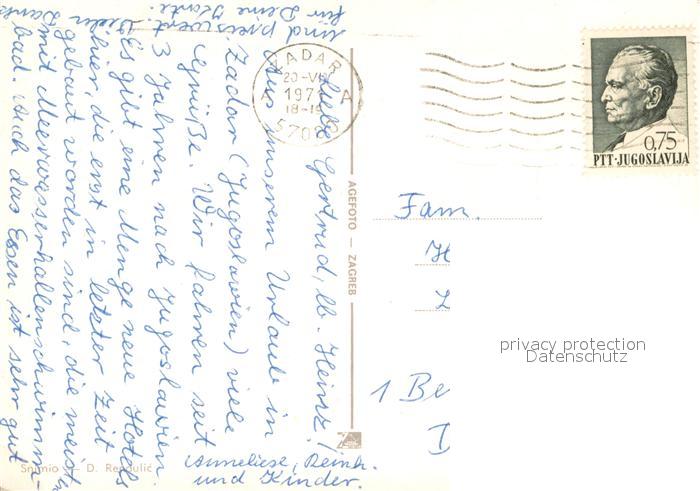 Liebe Gertrud, lb. Heinz!
Aus unserem Urlaub in
Zadar (Jugoslawien) viele
Grüße. Wir fahren seit
3 Jahren nach Jugoslawien.
Es gibt eine Menge neue Hotels
hier, die erst in letzter Zeit
gebaut worden sind, die meisten
mit Meerwasserhallenschwimm-
bad. Auch das Essen ist sehr gut
und preiswert. Vielen Dank
für Deine Karte.
Anneliese, Reinh.
und Kinder.
ZADAR
20-VII
197
18-19
A A
5700
0,75
PTT-JUGOSLAVIJA
AGEFOTO — ZAGREB
Fam.
H
1 Be
privacy protection
Datenschutz
Snimio — D. Rendulić